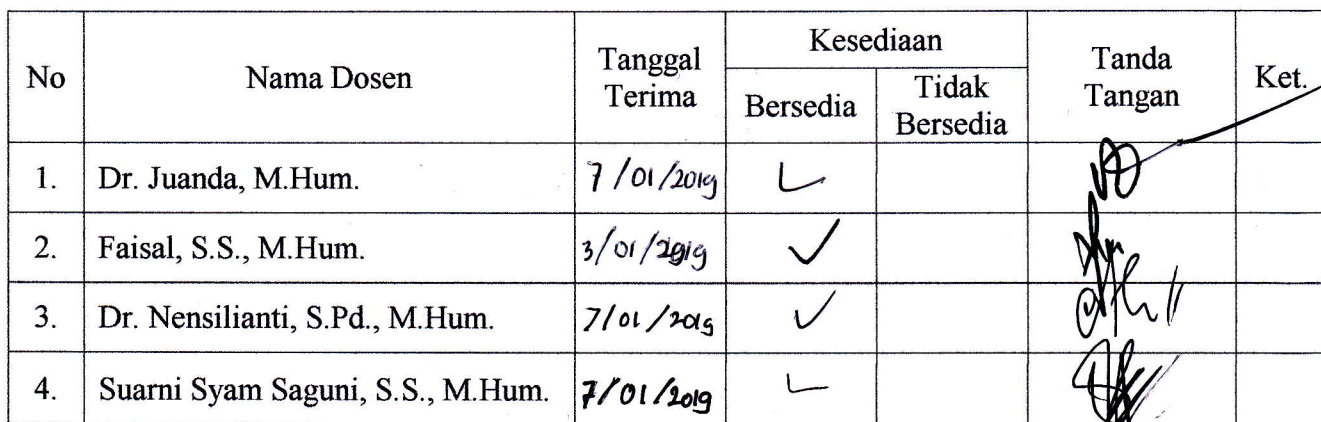 No Nama Dosen Tanggal Terima Kesediaan Tanda Tangan Ket.
Bersedia Tidak Bersedia
1. Dr. Juanda, M.Hum. 7/01/2019
2. Faisal, S.S., M.Hum. 3/01/2019
3. Dr. Nensilianti, S.Pd., M.Hum. 7/01/2019
4. Suarni Syam Saguni, S.S., M.Hum. 7/01/2019